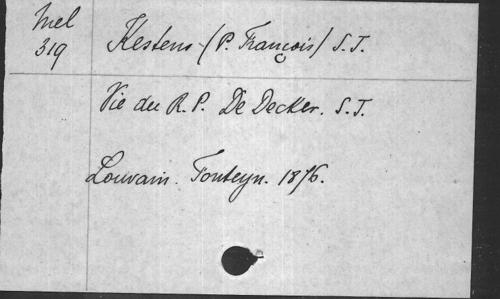 Mel
319
Kestens (P. François) S.J.
Vie du R.P. De Decker. S.J.
Louvain. Fonteyn. 1876.